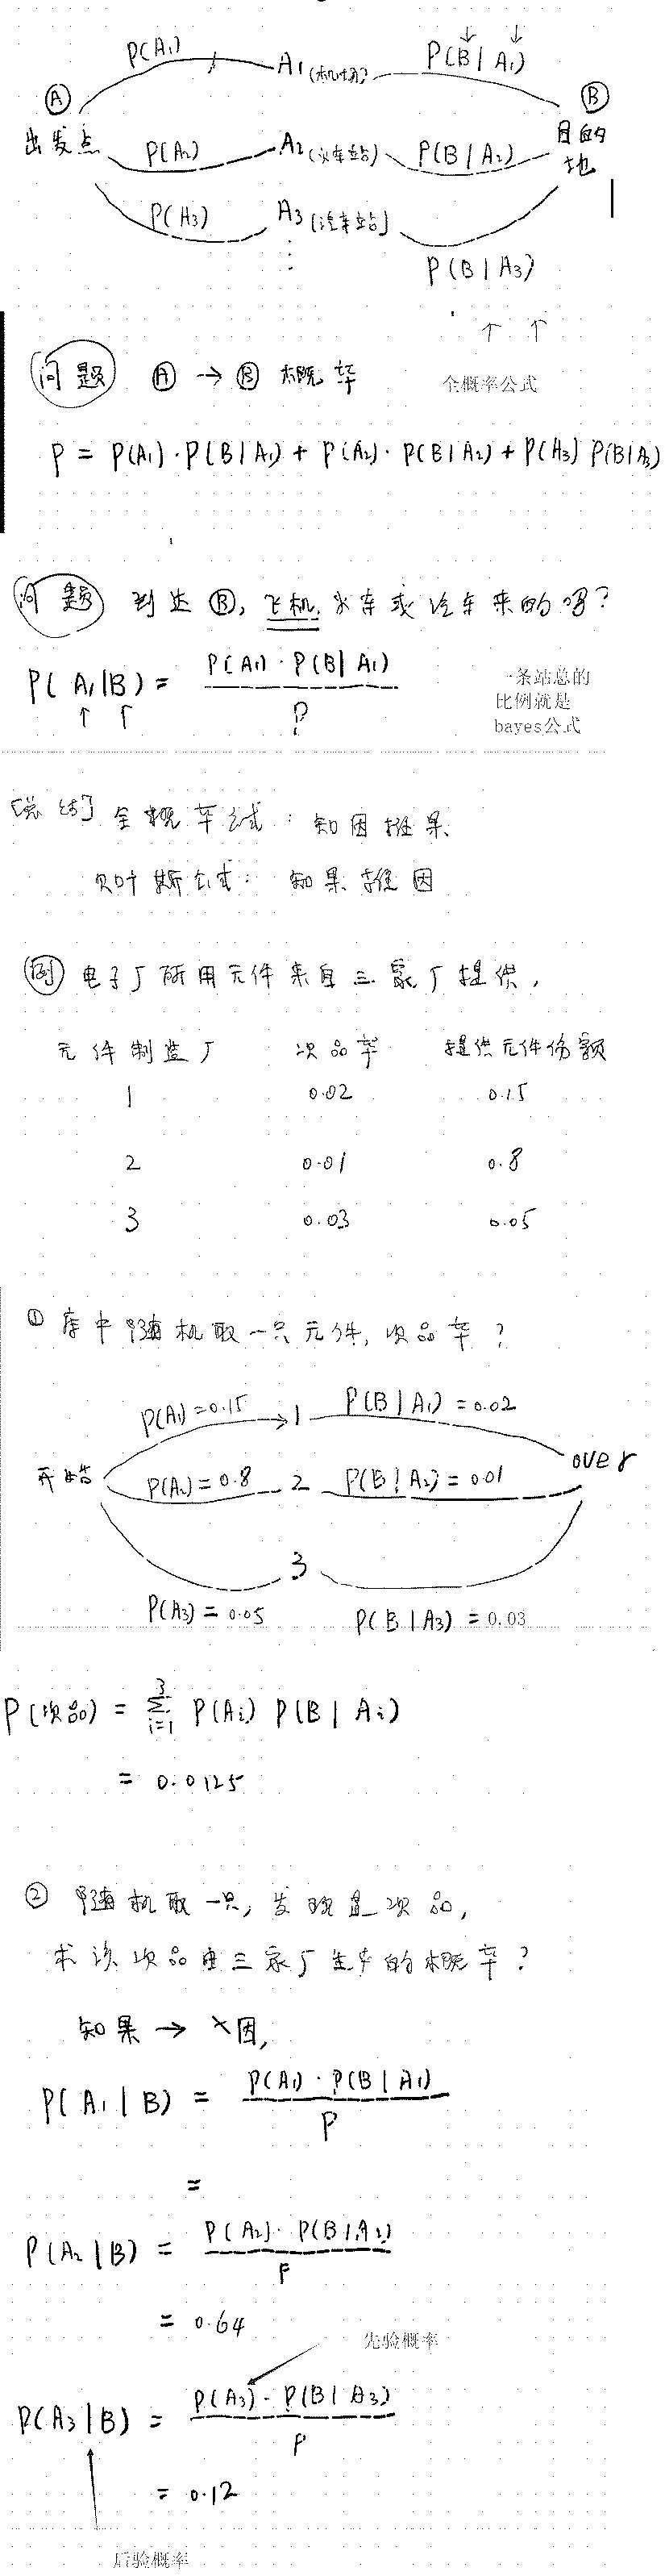 P(A₁) A₁(机场) P(B|A₁)
Ⓐ Ⓑ
出发点 P(A₂) A₂(火车站) P(B|A₂) 目的地
P(A₃) A₃(汽车站)
⋮ P(B|A₃)
↑ ↑
问题 Ⓐ → Ⓑ 概率 全概率公式
P = P(A₁)·P(B|A₁) + P(A₂)·P(B|A₂) + P(A₃) P(B|A₃)
问题 到达Ⓑ, 飞机,火车或汽车来的吗?
P(A₁|B) = P(A₁)·P(B|A₁) / P
↑ ↑
一条站总的
比例就是
bayes公式
[总结] 全概率公式: 知因推果,
贝叶斯公式: 知果推因
例 电子厂所用元件来自三家厂提供,
元件制造厂 次品率 提供元件份额
1 0.02 0.15
2 0.01 0.8
3 0.03 0.05
① 库中随机取一只元件, 次品率?
P(A₁)=0.15 → 1 P(B|A₁)=0.02
开始 P(A₂)=0.8 2 P(B|A₂)=0.01 over
3
P(A₃)=0.05 P(B|A₃)=0.03
P(次品) = ∑ᵢ₌₁³ P(Aᵢ) P(B|Aᵢ)
= 0.0125
② 随机取一只, 发现是次品,
求该次品由三家厂生产的概率?
知果 → 因,
P(A₁|B) = P(A₁)·P(B|A₁) / P
=
P(A₂|B) = P(A₂)·P(B|A₂) / P
= 0.64
先验概率
P(A₃|B) = P(A₃)·P(B|A₃) / P
= 0.12
后验概率